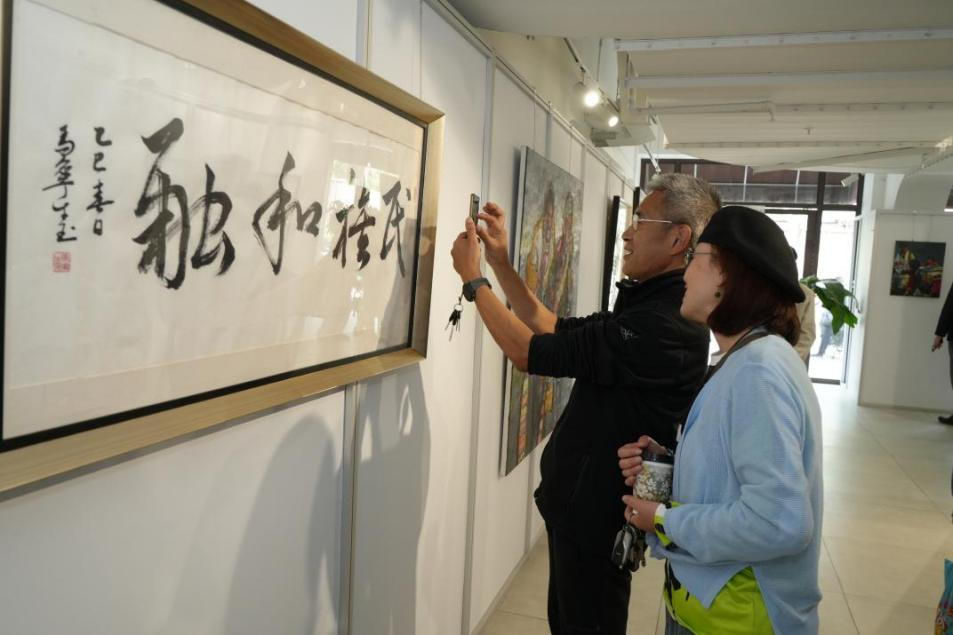 民族和融
乙巳春日